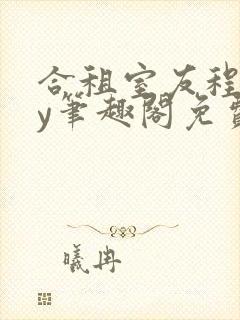 合租室友程
y笔趣阁免费
曦冉